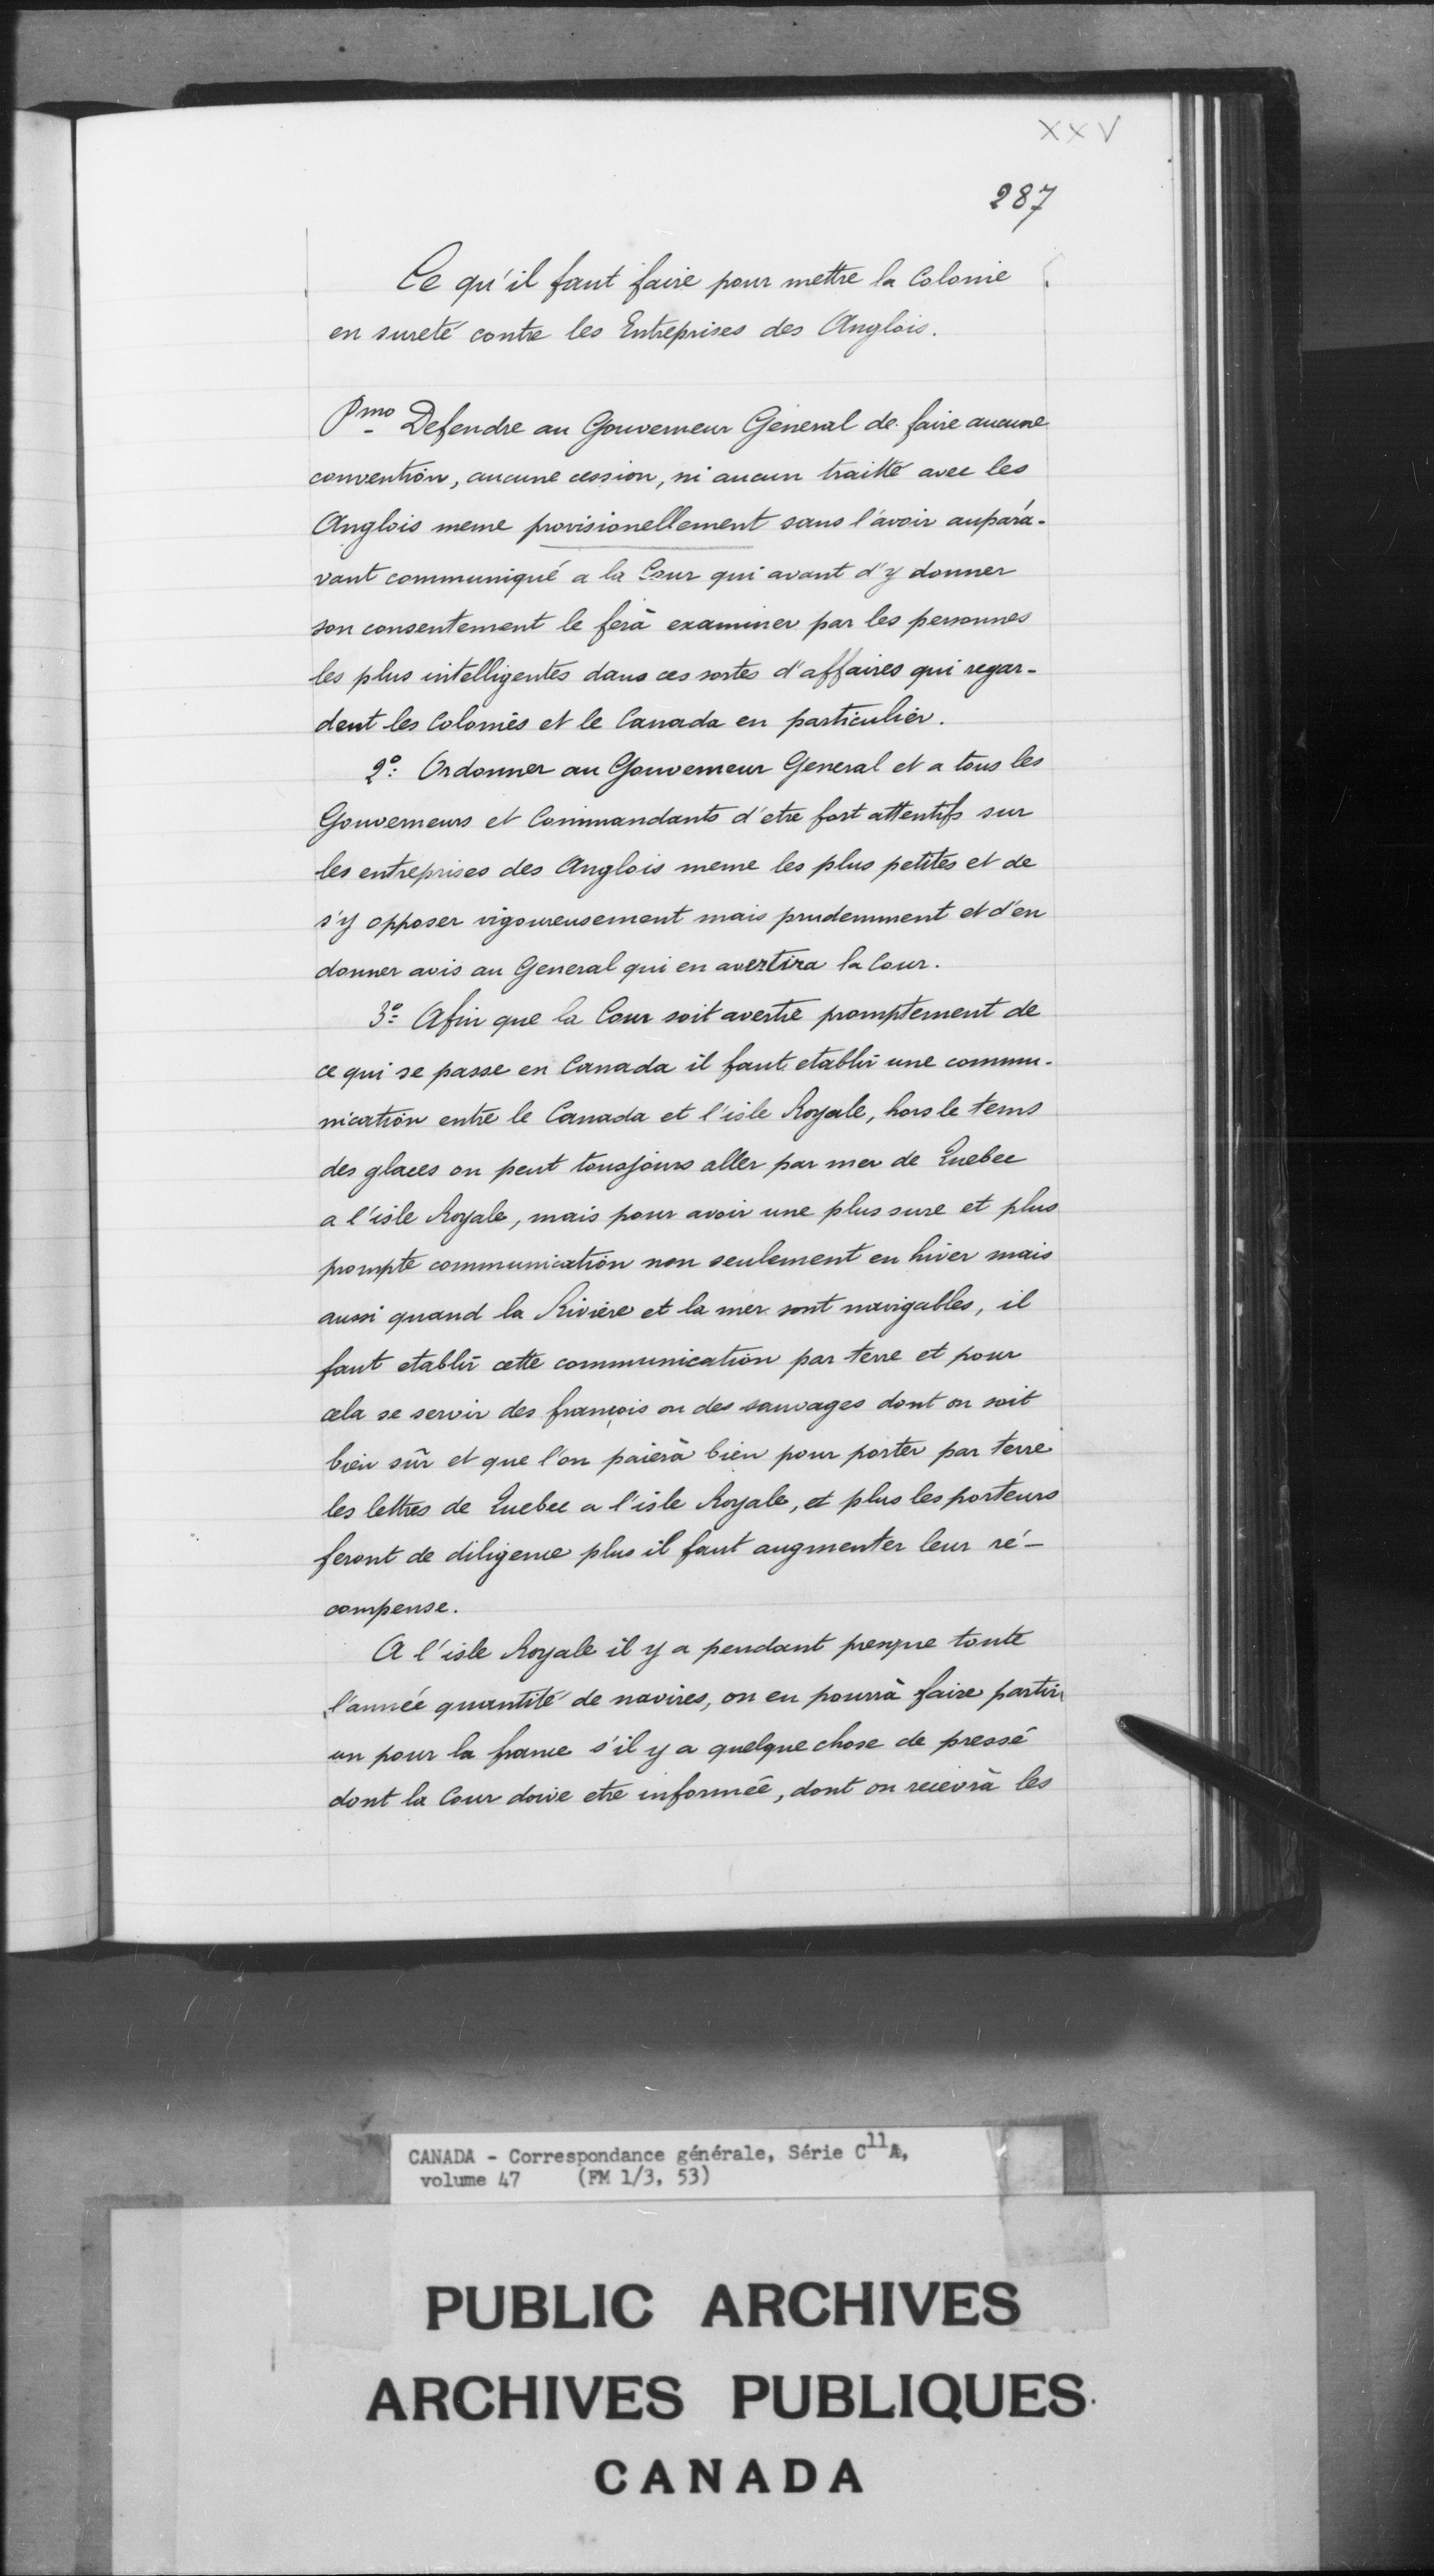 XXV
287
Ce qu'il faut faire pour mettre la Colonie
en sureté contre les Entreprises des Anglois.
Pmo Defendre au Gouverneur General de faire aucune
convention, aucune cession, ni aucun traitté avec les
Anglois meme provisionellement sans l'avoir aupara-
vant communiqué a la Cour qui avant d'y donner
son consentement le ferà examiner par les personnes
les plus intelligentes dans ces sortes d'affaires qui regar-
dent les Colonies et le Canada en particulier.
2º: Ordonner au Gouverneur General et a tous les
Gouverneurs et Commandants d'etre fort attentifs sur
les entreprises des Anglois meme les plus petites et de
s'y opposer vigoureusement mais prudemment et d'en
donner avis au General qui en avertira la Cour.
3º: Afin que la Cour soit avertie promptement de
ce qui se passe en Canada il faut etablir une commu-
nication entre le Canada et l'isle Royale, hors le tems
des glaces on peut tousjours aller par mer de Quebec
a l'isle Royale, mais pour avoir une plus sure et plus
prompte communication non seulement en hiver mais
aussi quand la Riviere et la mer sont navigables, il
faut etablir cette communication par terre et pour
cela se servir des françois ou des sauvages dont on soit
bien sûr et que l'on paierà bien pour porter par terre
les lettres de Quebec a l'isle Royale, et plus les porteurs
feront de diligence plus il faut augmenter leur ré-
compense.
A l'isle Royale il y a pendant presque toute
l'année quantité de navires, on en pourrà faire partir
un pour la france s'il y a quelque chose de pressé
dont la Cour doive etre informée, dont on recevrà les
CANADA - Correspondance générale, Série C11A,
volume 47 (FM 1/3, 53)
PUBLIC ARCHIVES
ARCHIVES PUBLIQUES
CANADA